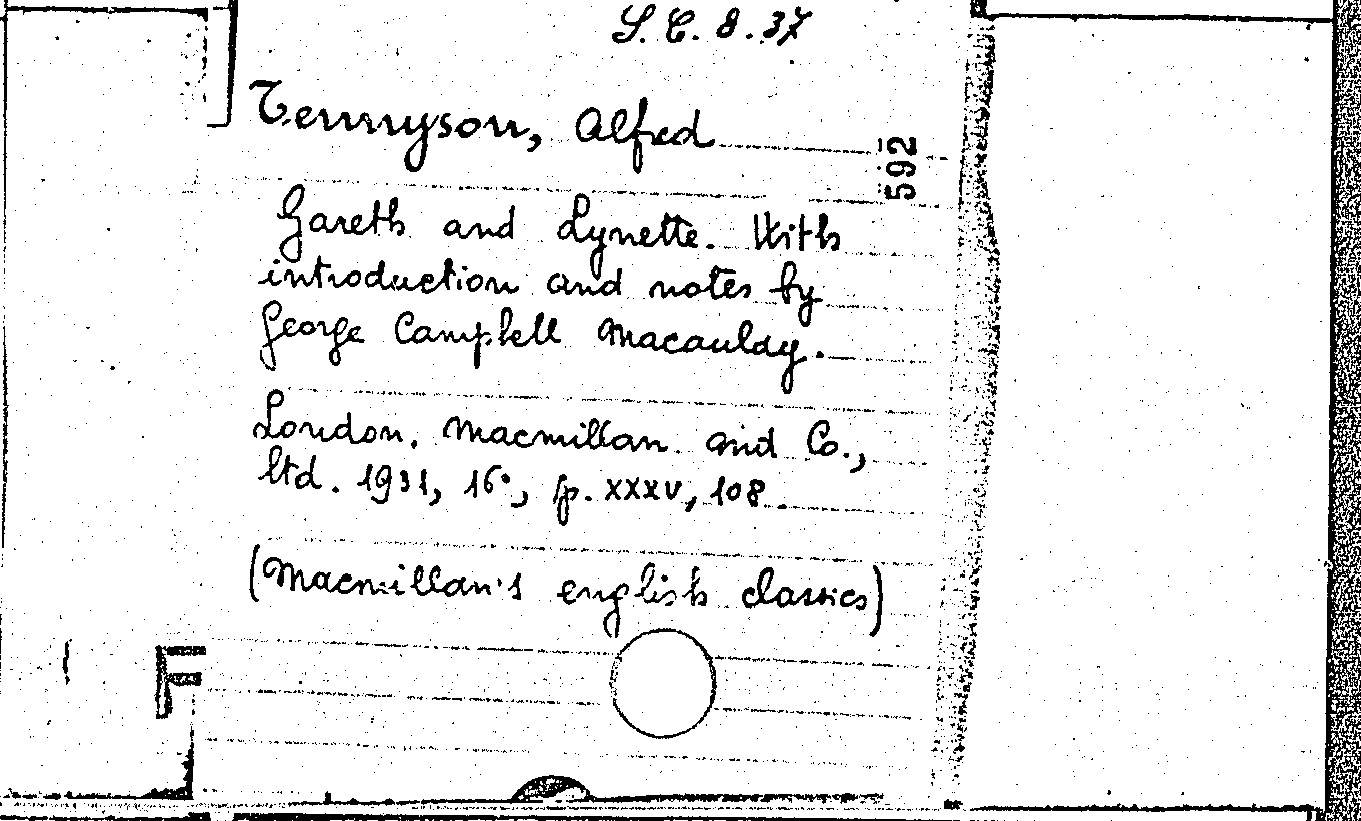 S. C. 8. 37
Tennyson, Alfred
592
Gareth and Lynette. With
introduction and notes by
George Campbell Macaulay.
London, Macmillan and Co.,
ltd. 1931, 16°, p. XXXV, 108.
(Macmillan's english classics)
F